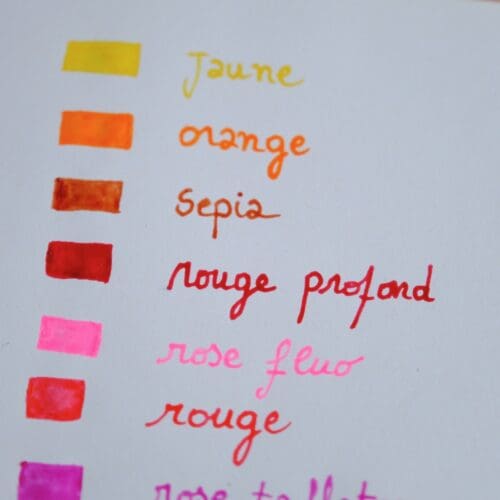 Jaune
orange
sepia
rouge profond
rose fluo
rouge
rose